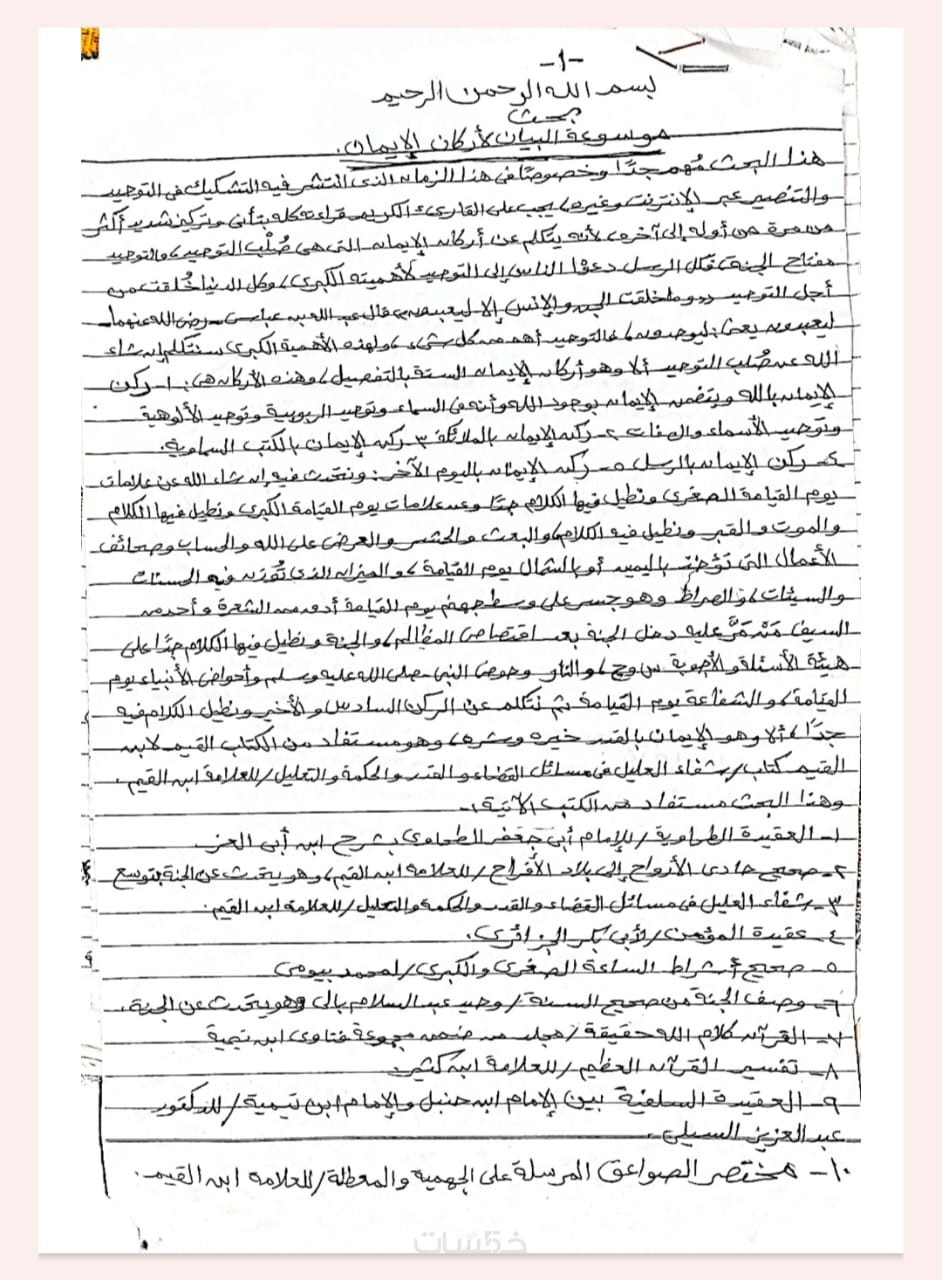 -١-
بسم الله الرحمن الرحيم
بحث
موسوعة البيان لأركان الإيمان.
هذا البحث مُهم جدًا وخصوصًا في هذا الزمان الذي انتشر فيه التشكيك في التوحيد
والتنصير عبر الإنترنت وغيره، يجب على القارىء الكريم قراءته كله بتأنى وتركيز شديد أكثر
من مرة من أوله إلى آخره، لأنه يتكلم عن أركان الإيمان التى هى صُلْب التوحيد، والتوحيد
مفتاح الجنة، فكل الرسل دعوْا الناس إلى التوحيد لأهميته الكبرى، وكل الدنيا خُلقت من
أجل التوحيد ((وما خلقت الجن والإنس إلا ليعبدون)) قال عبد الله بن عباس - رضى الله عنهما -
ليعبدون يعنى: ليوحدون، فالتوحيد أهم من كل شىء، ولهذه الأهمية الكبرى سنتكلم إن شاء
الله عن صُلب التوحيد ألا وهو أركان الإيمان الستة بالتفصيل، وهذه الأركان هى: ١- ركن
الإيمان بالله ويتضمن الإيمان بوجود الله وأنه فى السماء وتوحيد الربوبية وتوحيد الألوهية
وتوحيد الأسماء والصفات ٢- ركن الإيمان بالملائكة ٣- ركن الإيمان بالكتب السماوية.
٤- ركن الإيمان بالرسل ٥- ركن الإيمان باليوم الآخر: ونتحدث فيه إن شاء الله عن علامات
يوم القيامة الصغرى ونطيل فيها الكلام جدًا وعن علامات يوم القيامة الكبرى ونطيل فيها الكلام
والموت والقبر ونطيل فيه الكلام، والبعث والحشر والعرض على الله والحساب وصحائف
الأعمال التى تؤخذ باليمين أو بالشمال يوم القيامة، والميزان الذى تُوزن فيه الحسنات
والسيئات، والصراط وهو جسر على وسط جهنم يوم القيامة أدق من الشعرة وأحد من
السيف مَنْ مَرَّ عليه دخل الجنة بعد اقتصاص المظالم، والجنة ونطيل فيها الكلام جدًا على
هيئة الأسئلة والأجوبة س وج، والنار وحوض النبى صلى الله عليه وسلم وأحواض الأنبياء يوم
القيامة، والشفاعة يوم القيامة ثم نتكلم عن الركن السادس والأخير ونطيل الكلام فيه
جدًا، ألا وهو الإيمان بالقدر خيره وشره، وهو مستفاد من الكتاب القيم لابن
القيم كتاب/ شفاء العليل فى مسائل القضاء والقدر والحكمة والتعليل/ للعلامة ابن القيم.
وهذا البحث مستفاد من الكتب الآتية:-
١- العقيدة الطحاوية/ للإمام أبى جعفر الطحاوى بشرح ابن أبى العز.
٢- صحيح حادى الأرواح إلى بلاد الأفراح/ للعلامة ابن القيم، وهو يتحدث عن الجنة بتوسع
٣- شفاء العليل فى مسائل القضاء والقدر والحكمة والتعليل/ للعلامة ابن القيم.
٤- عقيدة المؤمن/ لأبى بكر الجزائرى.
٥- صحيح أشراط الساعة الصغرى والكبرى/ لمحمد بيومى
٦- وصف الجنة من صحيح السنة/ وحيد عبد السلام بالى وهو يتحدث عن الجنة.
٧- القرآن كلام الله حقيقة/ مجلد من ضمن مجموعة فتاوى ابن تيمية
٨- تفسير القرآن العظيم/ للعلامة ابن كثير.
٩- العقيدة السلفية بين الإمام ابن حنبل والإمام ابن تيمية/ للدكتور
عبد العزيز السيلى.
١٠- مختصر الصواعق المرسلة على الجهمية والمعطلة/ للعلامة ابن القيم.
خمسات